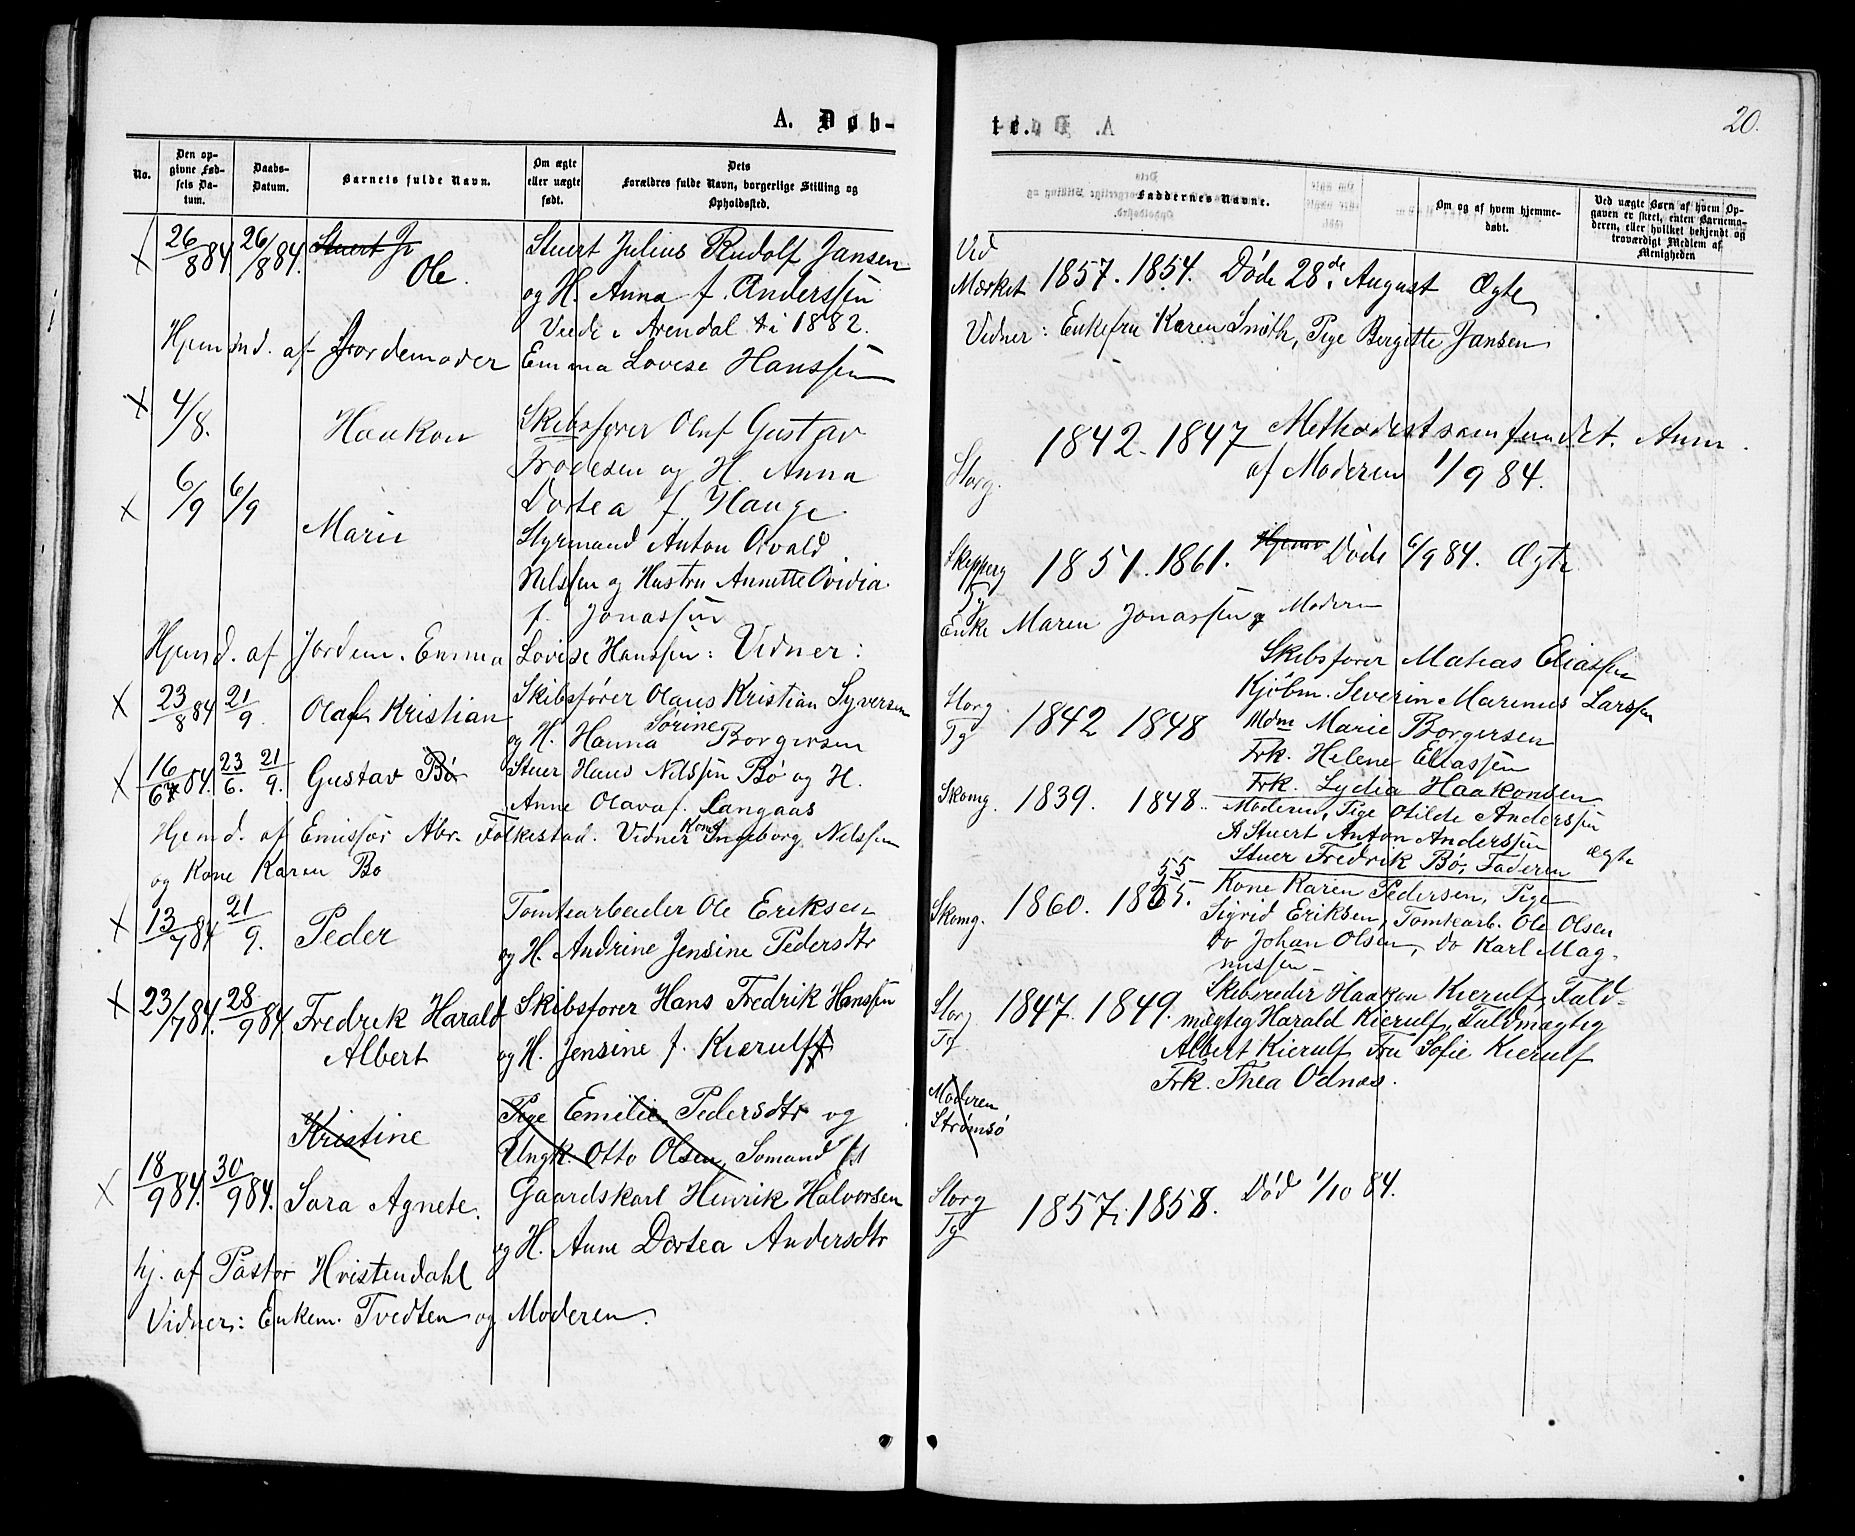 A. Døb-
No.
Den op-
givne Fød-
sels Da-
tum.
Daabs-
Datum.
Barnets fulde Navn.
Om ægte
eller uægte
født.
Dets
Forældres fulde Navn, borgerlige Stilling og
Opholdssted.
26/8 84 26/8 84. Stuert J Stuert Julius Rudolf Jansen
Ole. og H. Anna f. Anderssen
i Arendal i 1882.
Hjemmd. af Jordemoder Emma Lovise Hanssen
4/8. Haakon Skibsfører Oluf Gustav
Frodesen og H. Anna
Dortea f. Hauge.
6/9 6/9 Marie Styrmand Anton Osvald
Nilssen og Hustru Annette Ovidia
f. Jonassen
Hjemd. af Jordem. Emma Lovise Hanssen: Vidner:
23/8 84 21/9. Olaf Kristian Skibsfører Olaus Kristian Syversen
og H. Hanna Sorine Borgersen
16/6 84. 23/6. 21/9. Gustav Bø Stuer Hans Nilssen Bø og H.
Anne Olava f. Langaas
Hjemd. af Emissær Abr. Folkestad. Vidner Kone Ingeborg Nilssen
og Kone Karen Bo
13/7 84 21/9. Peder Tomtearbeider Ole Eriksen
og H. Andrine Jensine Pedersdtr
23/7 84. 28/9 84 Fredrik Harald Skibsforer Hans Fredrik Hanssen
Albert og H. Jensine f. Kierulf
Kristine Pige Emilie Pedersdtr og
Ungk. Otto Olsen, Somand
18/9 84. 30/9 84. Sara Agnete. Gaardskarl Henrik Halvorsen
og H. Anne Dortea Andersdtr
hj. af Pastor Hvistendahl
Vidner: Enkem. Tvedten og Moderen.
te.
20.
Faddernes Navne.
Om og af hvem hjemme-
døbt.
Ved uægte Børn af hvem Op-
gaven er skeet, enten Barnemo-
deren, eller hvilket bekjendt og
troværdigt Medlem af
Menigheden
Ved
Mærket 1857. 1854. Døde 28de August Ægte
Vidner: Enkefru Karen Smith, Pige Bergitte Jansen
Storg. 1842. 1847 Methodistsamfundet. Anm.
af Moderen 1/9 84.
Skipperg 1851. 1861. Hjemd Døde 6/9 84. Ægte
Enke Maren Jonassen og Moderen
Storg
Tg 1842 1848 Skibsfører Matias Eliassen
Kjøbm. Severin Marinus Larssen
Mdm Marie Borgersen
Frk. Helene Eliassen
Frk. Lydia Haakonsen
Skomg. 1839. 1848. Moderen, Pige Otilde Anderssen
Stuert Anton Anderssen Ægte
Stuer Fredrik Bø, Faderen
Skomg. 1860. 1855. 55 Kone Karen Pedersen, Pige
Sigrid Eriksen, Tomtearb. Ole Olsen
Do Johan Olsen, Do Karl Mag-
nussen
Storg
Tg 1847. 1849. Skibsreder Haakon Kierulf, Fuld-
mægtig Harald Kierulf, Fuldmægtig
Albert Kierulf, Fru Sofie Kierulf
Frk. Thea Odnæs.
Moderen
Strømsø
Storg
Tg 1857. 1858. Død 1/10 84.